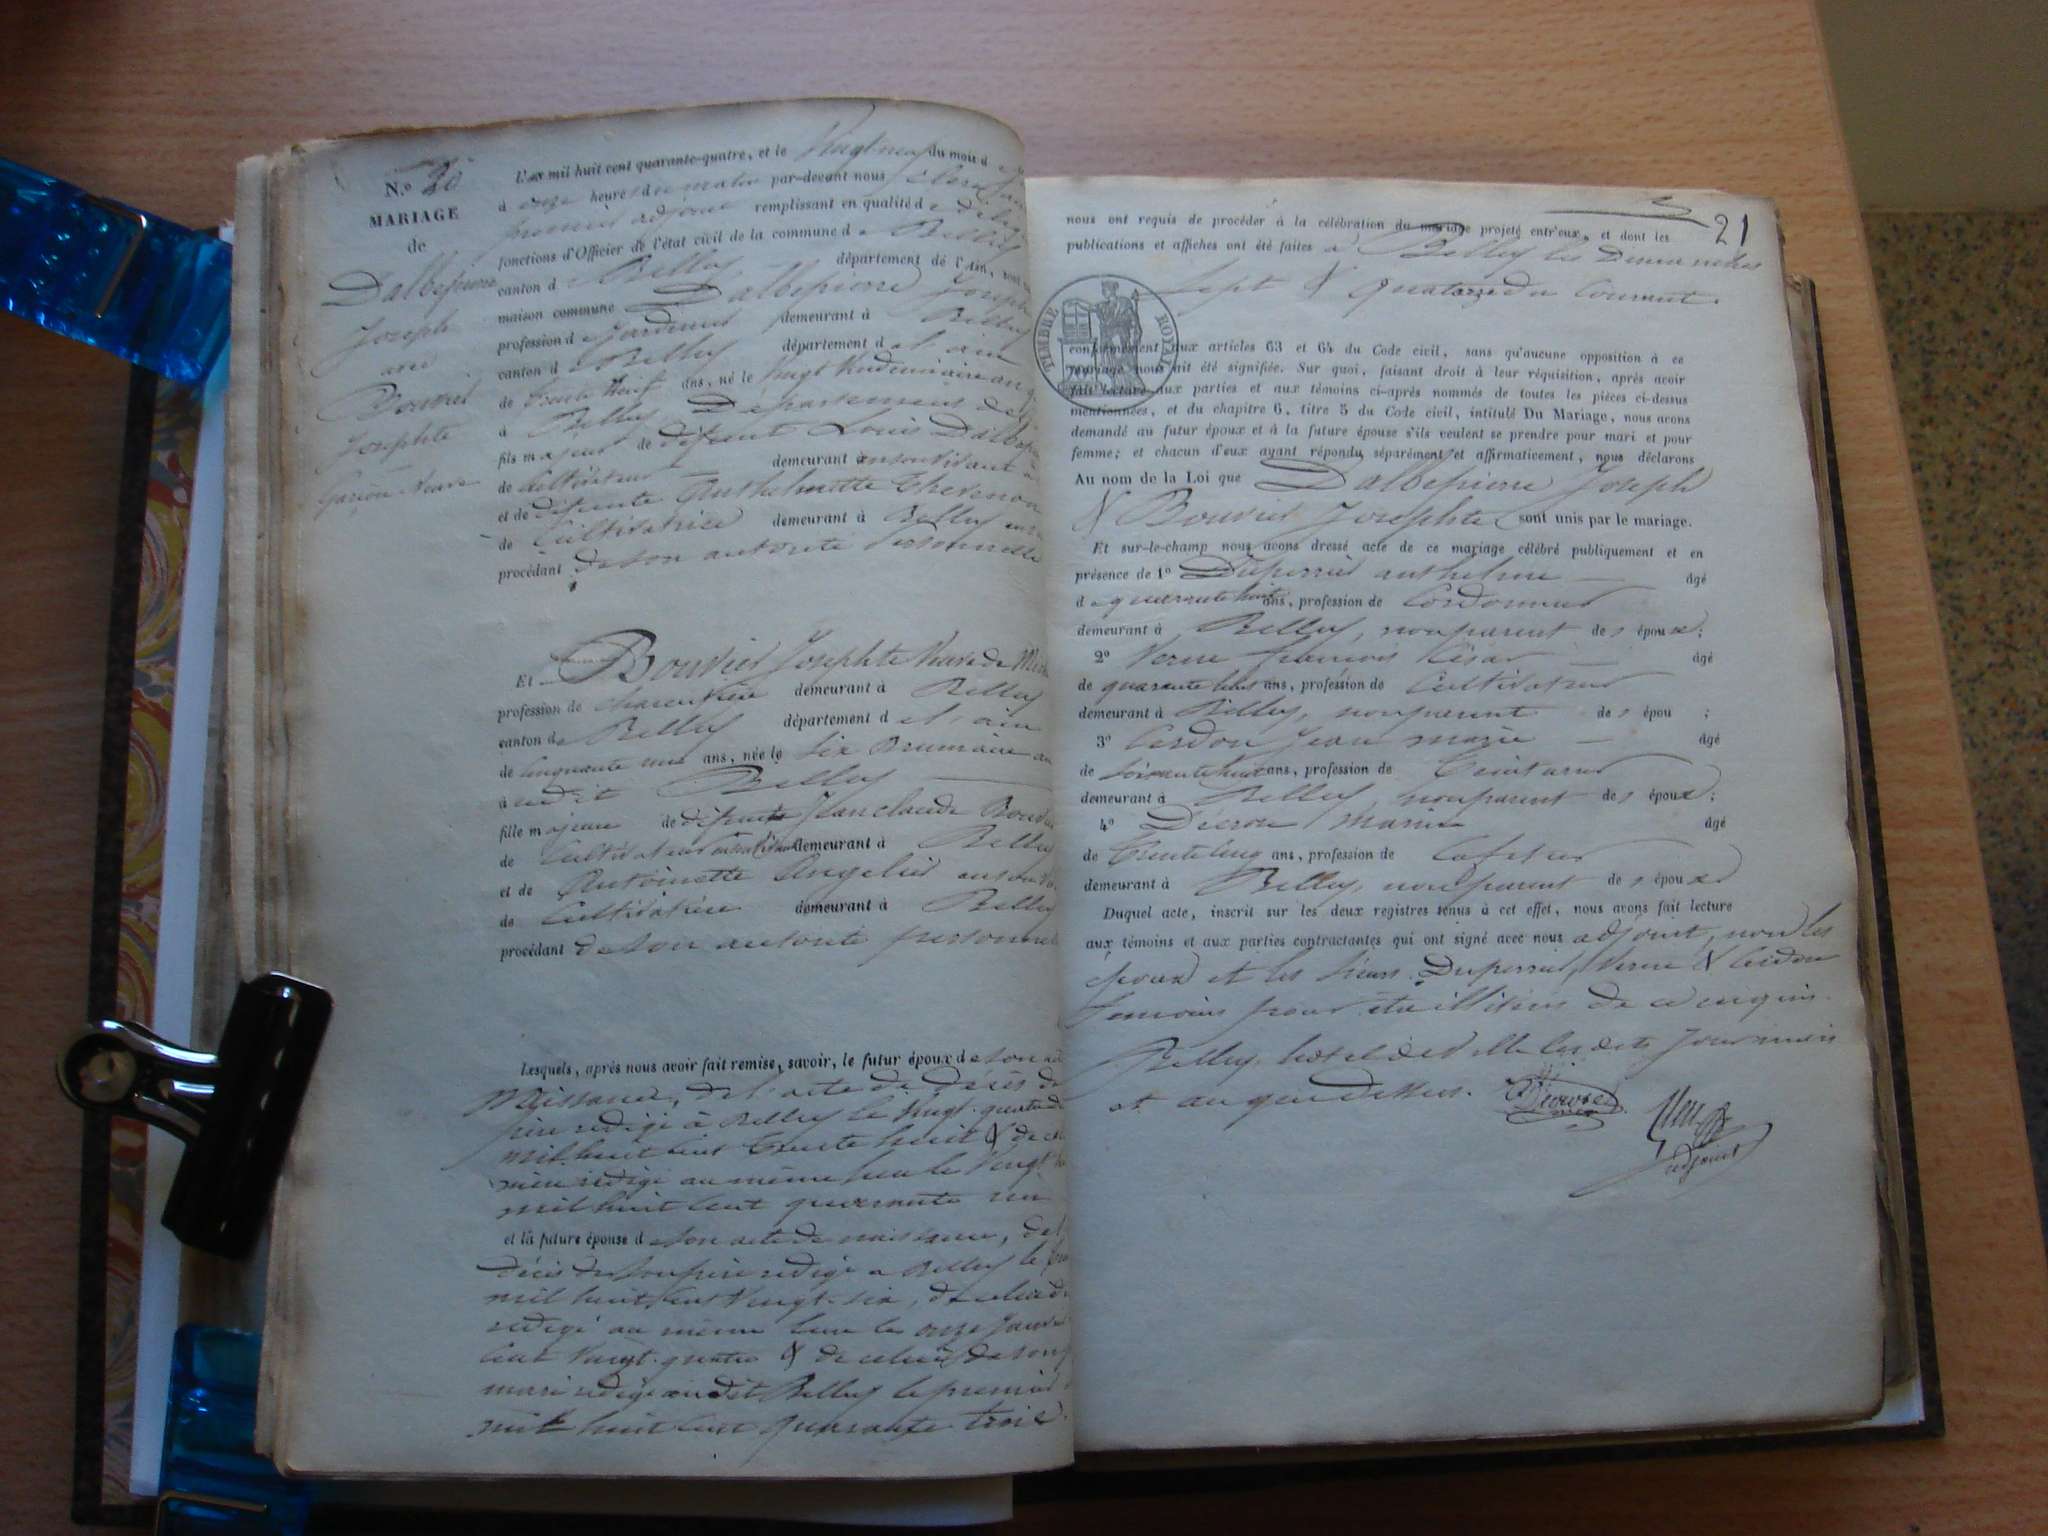 N.º 20
MARIAGE
de
Dalbepierre
Joseph
avec
Bouvier
Josephte
Garçon & Veuve
L'an mil huit cent quarante-quatre, et le Vingt neuf du mois d
à onze heures du matin par-devant nous
premier adjoint remplissant en qualité de
fonctions d'Officier de l'état civil de la commune de Belley
canton de Belley département de l'Ain,
maison commune Dalbepierre Joseph
profession de Jardinier demeurant à Belley
canton de Belley département de l'ain
de trente neuf ans, né le Vingt Vendemiaire an
à Belley Département de
fils majeur de défunt Louis Dalbepierre
de Cultivateur demeurant en son vivant à
et de défunte Anthelmette Thevenon
de Cultivatrice demeurant à Belley
procédant de son autorité personnelle
Et Bouvier Josephte Veuve de
profession de charcutière demeurant à Belley
canton de Belley département de l'ain
de cinquante un ans, née le Six Brumaire an
à udit Belley
fille majeure de défunt Jean claude Bouvier
de Cultivateur demeurant à Belley
et de Antoinette Angelier
de Cultivatrice demeurant à Belley
procédant de son autorité personnelle
Lesquels, après nous avoir fait remise, savoir, le futur époux de son
Naissance, de l'acte de décès de
père redigé à Belley le Vingt-quatre
mil huit cent trente huit & de
mère redigé au même lieu le Vingt
mil huit cent quarante un
et la future épouse de son acte de naissance, de
décès de son père redigé a Belley le
mil huit cent Vingt-six, de celui de
redigé au même lieu le onze Janvier
cent Vingt-quatre & de celui de son
mari redigé audit Belley le premier
mil huit cent quarante trois.
21
nous ont requis de procéder à la célébration du mariage projeté entr'eux, et dont les
publications et affiches ont été faites à Belley les Dimanches
Sept & quatorze du Courant.
TIMBRE ROYAL
conformément aux articles 63 et 64 du Code civil, sans qu'aucune opposition à ce
mariage nous ait été signifiée. Sur quoi, faisant droit à leur réquisition, après avoir
fait lecture aux parties et aux témoins ci-après nommés de toutes les pièces ci-dessus
mentionnées, et du chapitre 6, titre 5 du Code civil, intitulé Du Mariage, nous avons
demandé au futur époux et à la future épouse s'ils veulent se prendre pour mari et pour
femme; et chacun d'eux ayant répondu séparément et affirmativement, nous déclarons
Au nom de la Loi que Dalbepierre Joseph
& Bouvier Josephte sont unis par le mariage.
Et sur-le-champ nous avons dressé acte de ce mariage célébré publiquement et en
présence de 1º Duperrier anthelme âgé
de quarante huit ans, profession de Cordonnier
demeurant à Belley, non parent des époux;
2º Verne françois César âgé
de quarante ans, profession de Cultivateur
demeurant à Belley, non parent des épou ;
3º Cerdon Jean marie âgé
de soixante huit ans, profession de
demeurant à Belley, non parent des époux;
4º Décroze Marin âgé
de Trente cinq ans, profession de Cafetier
demeurant à Belley, non parent des époux
Duquel acte, inscrit sur les deux registres tenus à cet effet, nous avons fait lecture
aux témoins et aux parties contractantes qui ont signé avec nous adjoint, non les
époux et les sieurs Duperrier, Verne & Cerdon
temoins pour être illitérés de ce enquis.
Belley, hôtel de Ville les dits Jour mois
et an que dessus.
Decroze
adjoint